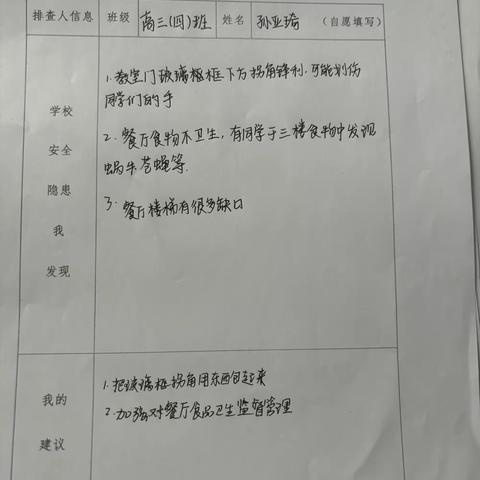 排查人信息 班级 高三(四)班 姓名 孙亚琦 (自愿填写)
学校
安全
隐患
我
发现
1. 教室门玻璃框框下方拐角锋利,可能划伤
同学们的手
2. 餐厅食物不卫生,有同学于三楼食物中发现
蜗牛苍蝇等.
3. 餐厅楼梯有很多缺口
我的
建议
1. 把玻璃框拐角用东西包起来
2. 加强对餐厅食品卫生监督管理